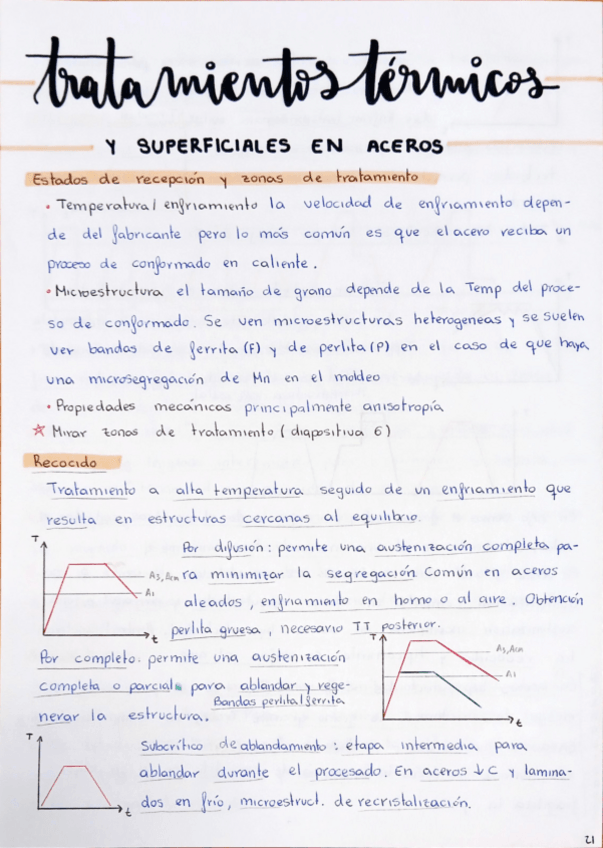 tratamientos térmicos
Y SUPERFICIALES EN ACEROS
Estados de recepción y zonas de tratamiento
• Temperatura/ enfriamiento la velocidad de enfriamiento depen-
de del fabricante pero lo más común es que el acero reciba un
proceso de conformado en caliente.
• Microestructura el tamaño de grano depende de la Temp del proce-
so de conformado. Se ven microestructuras heterogeneas y se suelen
ver bandas de ferrita (F) y de perlita (P) en el caso de que haya
una microsegregación de Mn en el moldeo
• Propiedades mecánicas principalmente anisotropía
☆ Mirar zonas de tratamiento (diapositiva 6)
Recocido
Tratamiento a alta temperatura seguido de un enfriamiento que
resulta en estructuras cercanas al equilibrio.
T
A3, Acm
A1
t
Por difusión: permite una austenización completa pa-
ra minimizar la segregación Común en aceros
aleados, enfriamiento en horno o al aire. Obtención
perlita gruesa, necesario TT posterior.
Por completo. permite una austenización
completa o parcial para ablandar y rege-
Bandas perlita/ferrita
nerar la estructura.
T
A3, Acm
A1
t
T
t
Subcrítico de ablandamiento: etapa intermedia para
ablandar durante el procesado. En aceros ↓C y lamina-
dos en frío, microestruct. de recristalización.
21